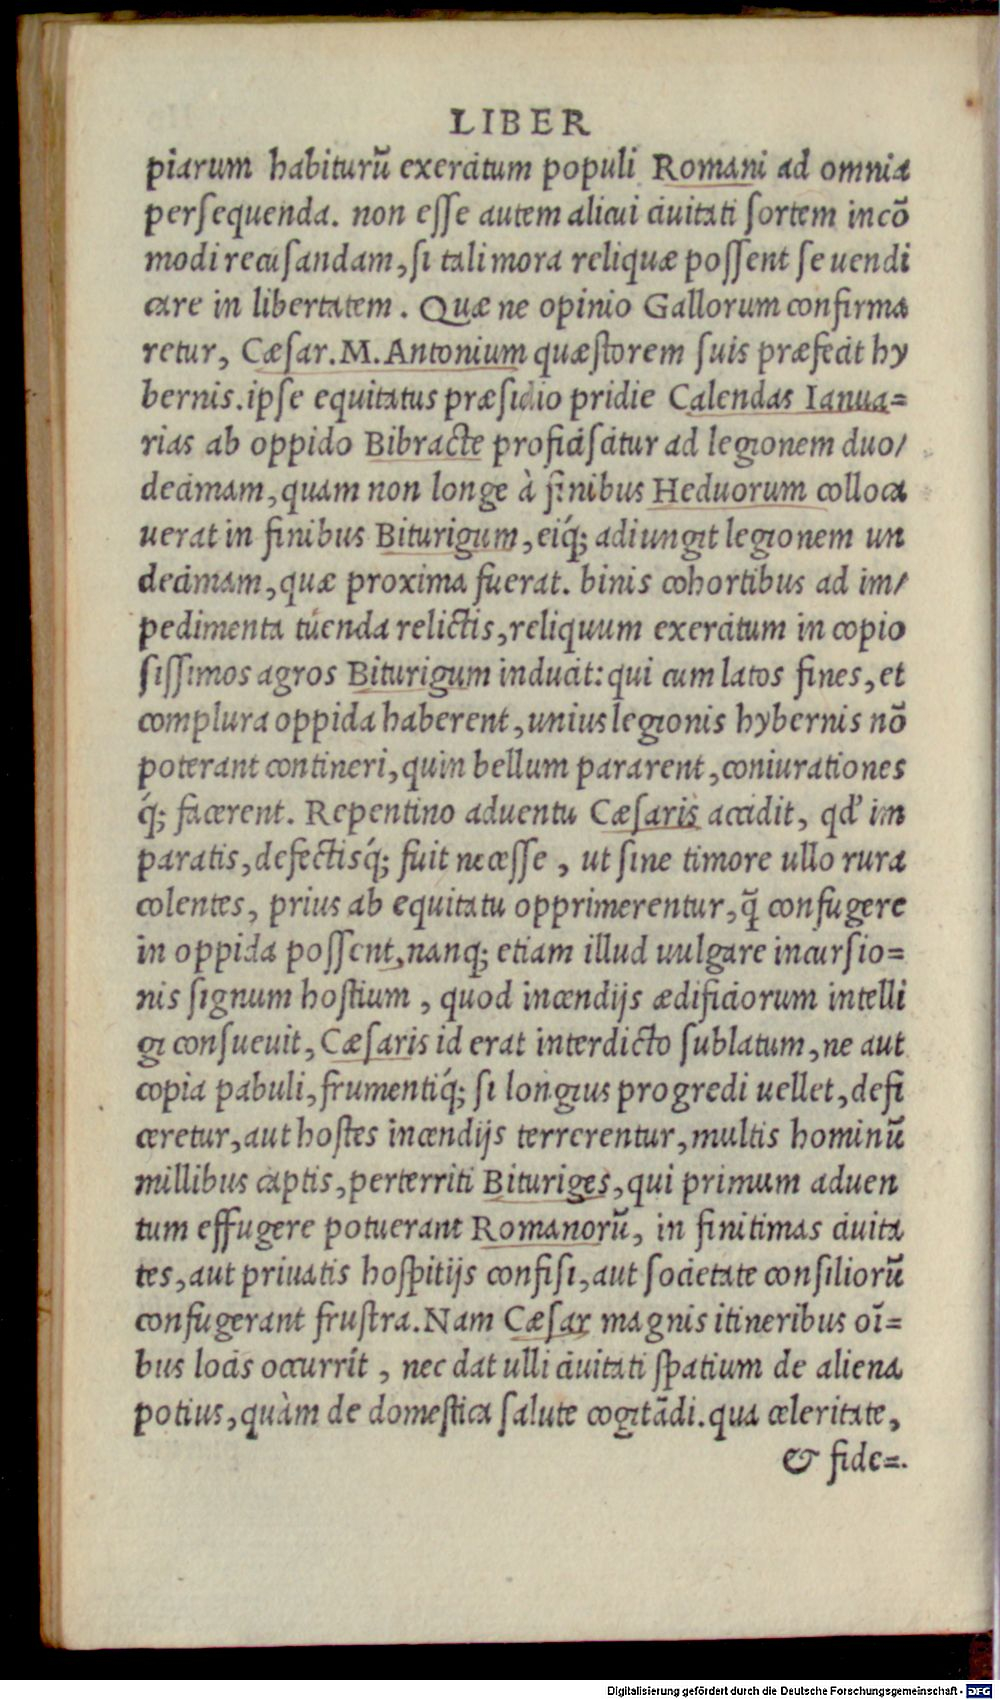 LIBER
piarum habiturũ exercitum populi Romani ad omnia
persequenda. non esse autem alicui ciuitati sortem incõ
modi recusandam, si tali mora reliquæ possent se uendi
care in libertatem. Quæ ne opinio Gallorum confirma
retur, Cæsar. M. Antonium quæstorem suis præfecit hy
bernis. ipse equitatus præsidio pridie Calendas Ianua=
rias ab oppido Bibracte proficiscitur ad legionem duo/
decimam, quam non longe à finibus Heduorum colloca
uerat in finibus Biturigum, eiq́; adiungit legionem un
decimam, quæ proxima fuerat. binis cohortibus ad im/
pedimenta túenda relictis, reliquum exercitum in copio
sissimos agros Biturigum inducit: qui cum latos fines, et
complura oppida haberent, unius legionis hybernis nõ
poterant contineri, quin bellum pararent, coniurationes
q́; facerent. Repentino aduentu Cæsaris accidit, qd' im
paratis, defectisq́; fuit necesse, ut sine timore ullo rura
colentes, prius ab equitatu opprimerentur, q̃ confugere
in oppida possent, nanq; etiam illud uulgare incursio=
nis signum hostium, quod incendijs ædificiorum intelli
gi consueuit, Cæsaris id erat interdicto sublatum, ne aut
copia pabuli, frumentiq́; si longius progredi uellet, defi
ceretur, aut hostes incendijs terrerentur, multis hominũ
millibus captis, perterriti Bituriges, qui primum aduen
tum effugere potuerant Romanorũ, in finitimas ciuita
tes, aut priuatis hospitijs confisi, aut societate consiliorũ
confugerant frustra. Nam Cæsar magnis itineribus oĩ=
bus locis occurrit, nec dat ulli ciuitati spatium de aliena
potius, quàm de domestica salute cogitãdi. qua celeritate,
& fide=.
Digitalisierung gefördert durch die Deutsche Forschungsgemeinschaft - DFG